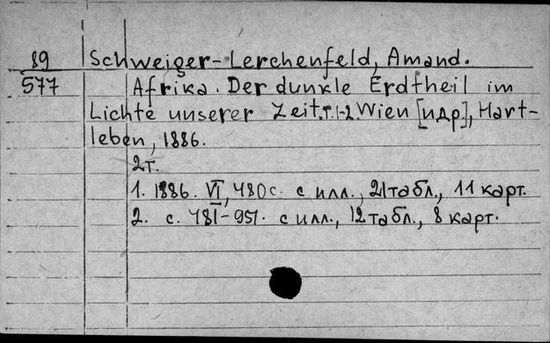 89 Schweiger-Lerchenfeld, Amand.
577 Afrika. Der dunkle Erdtheil im
Lichte unserer Zeit. т. 1-2. Wien [и др], Hart-
leben, 1886.
2т.
1. 1886. VI, 480 с. с илл., 21 табл., 11 карт.
2. с. 481-951. с илл., 12 табл., 8 карт.